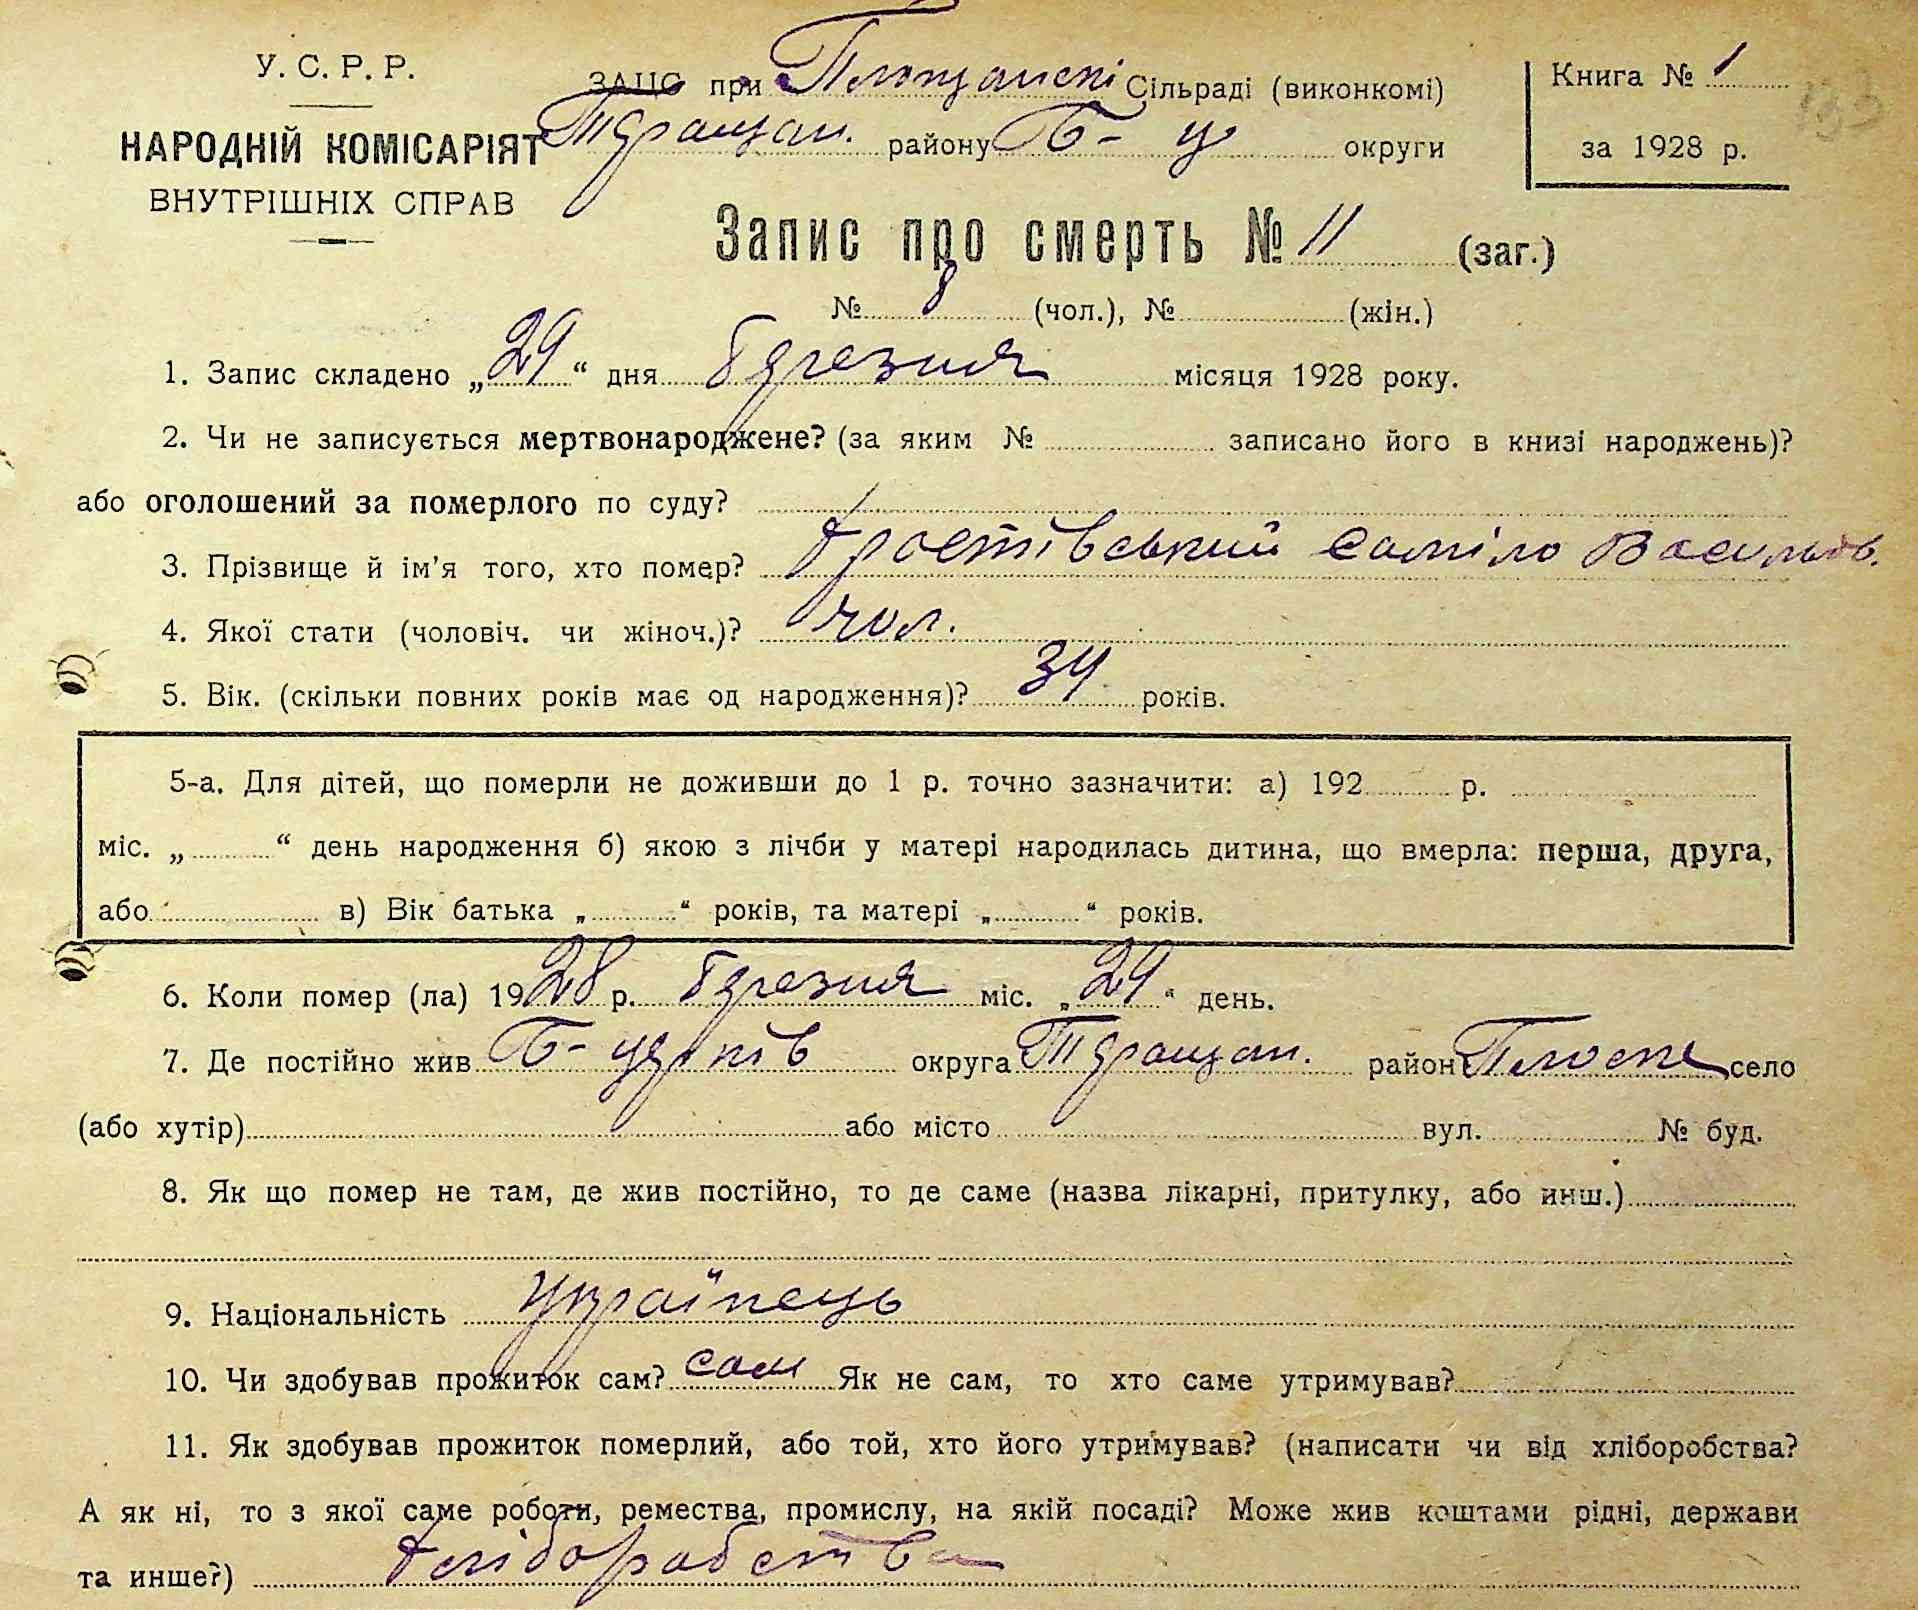 У. С. Р. Р.
НАРОДНІЙ КОМІСАРІЯТ
ВНУТРІШНІХ СПРАВ
ЗАЦС при Площанскі Сільраді (виконкомі)
Таращан. району Б-ц округи
Книга № 1
за 1928 р.
Запис про смерть № 11 (заг.)
№ 8 (чол.), № (жін.)
1. Запис складено „29“ дня березня місяця 1928 року.
2. Чи не записується мертвонароджене? (за яким № записано його в книзі народжень)?
або оголошений за померлого по суду?
3. Прізвище й ім'я того, хто помер? Хростівський Саміло Васильов.
4. Якої стати (чоловіч. чи жіноч.)? чол.
5. Вік. (скільки повних років має од народження)? 34 років.
5-а. Для дітей, що померли не доживши до 1 р. точно зазначити: а) 192 р.
міс. „ “ день народження б) якою з лічби у матері народилась дитина, що вмерла: перша, друга,
або в) Вік батька „ “ років, та матері „ “ років.
6. Коли помер (ла) 1928 р. березня міс. „29“ день.
7. Де постійно жив Б-церків округа Таращан. район Плоске село
(або хутір) або місто вул. № буд.
8. Як що помер не там, де жив постійно, то де саме (назва лікарні, притулку, або инш.)
9. Національність Українець
10. Чи здобував прожиток сам? сам Як не сам, то хто саме утримував?
11. Як здобував прожиток померлий, або той, хто його утримував? (написати чи від хліборобства?
А як ні, то з якої саме роботи, ремества, промислу, на якій посаді? Може жив коштами рідні, держави
та инше?) хліборобства